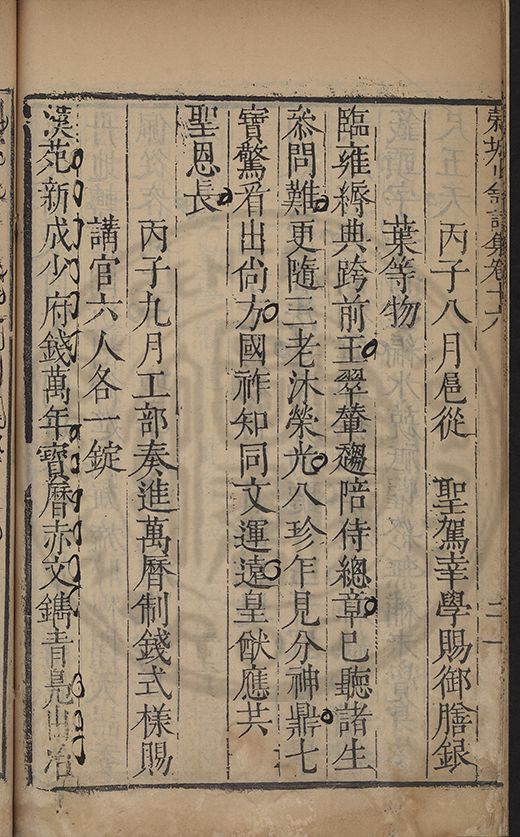 集卷十六
丙子八月扈從　聖駕幸學賜御膳銀
葉等物
臨雍縟典跨前王翠輦趨陪侍總章已聽諸生
叅問難更隨三老沐榮光八珍乍見分神鼎七
寶驚看出尙方國祚知同文運遠皇猷應共
聖恩長
丙子九月工部奏進萬曆制錢式樣賜
講官六人各一錠
漢苑新成少府錢萬年寶曆赤文鐫青鳧出冶